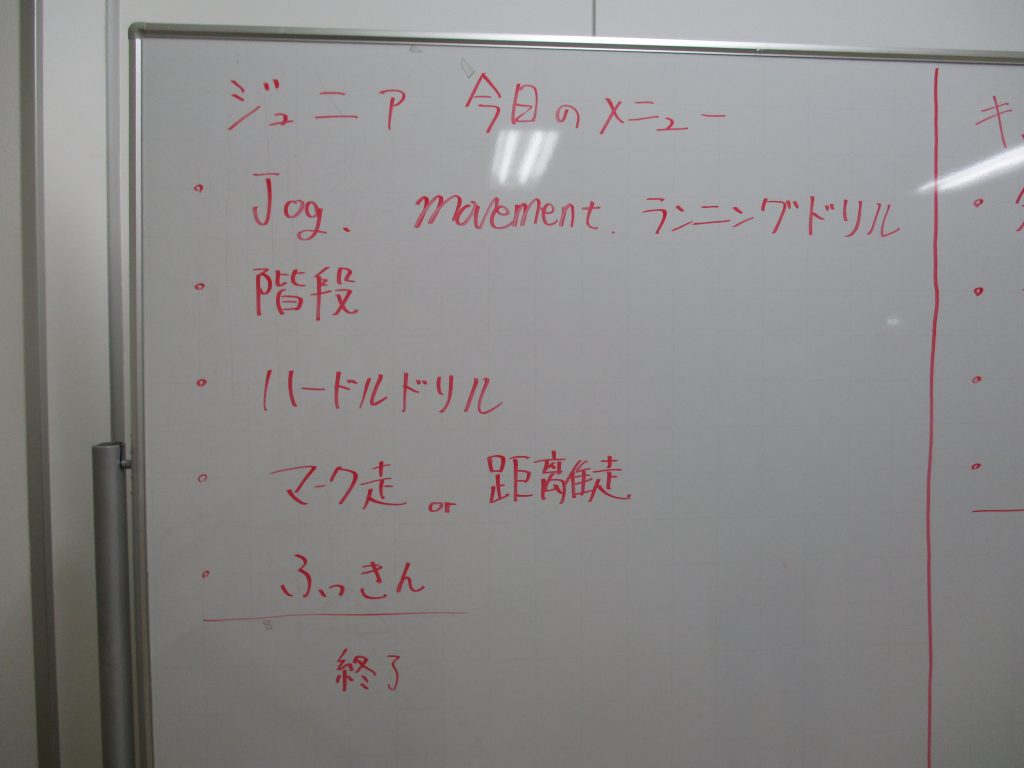 ジュニア 今日のメニュー
・ Jog、 movement. ランニングドリル
・ 階段
・ ハードルドリル
・ マーク走 or 距離走
・ ふっきん
終了
キ